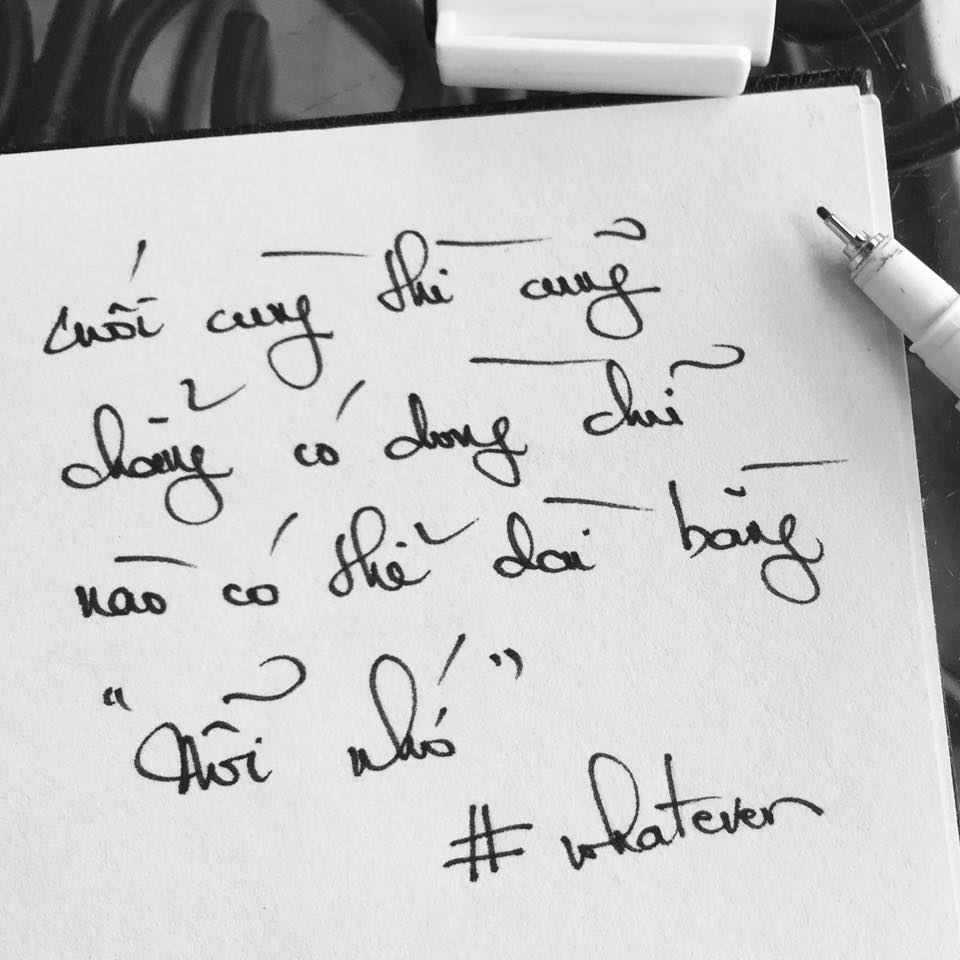 cuối cùng thì cũng
chẳng có dòng chữ
nào có thể dài bằng
“Nỗi nhớ”
# whatever